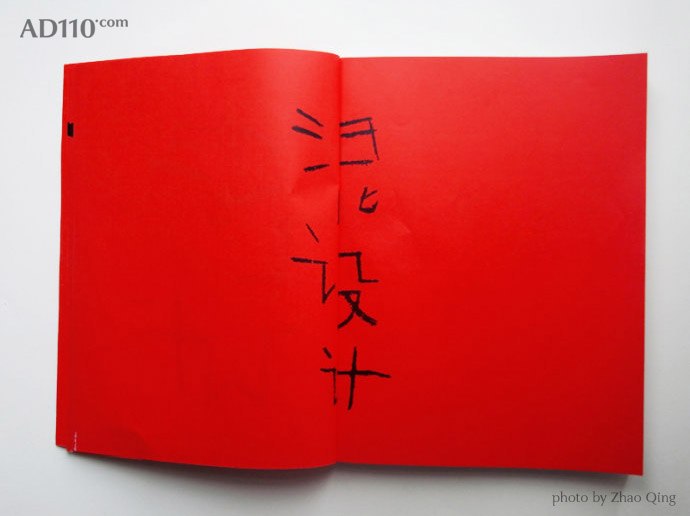 AD110.com
混设计
photo by Zhao Qing